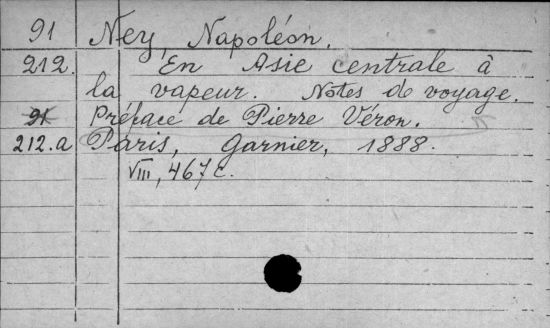 91 Ney, Napoléon.
212. En Asie centrale à
la vapeur. Notes de voyage.
91 Préface de Pierre Véron.
212.a Paris, Garnier, 1888.
VIII, 467 c.